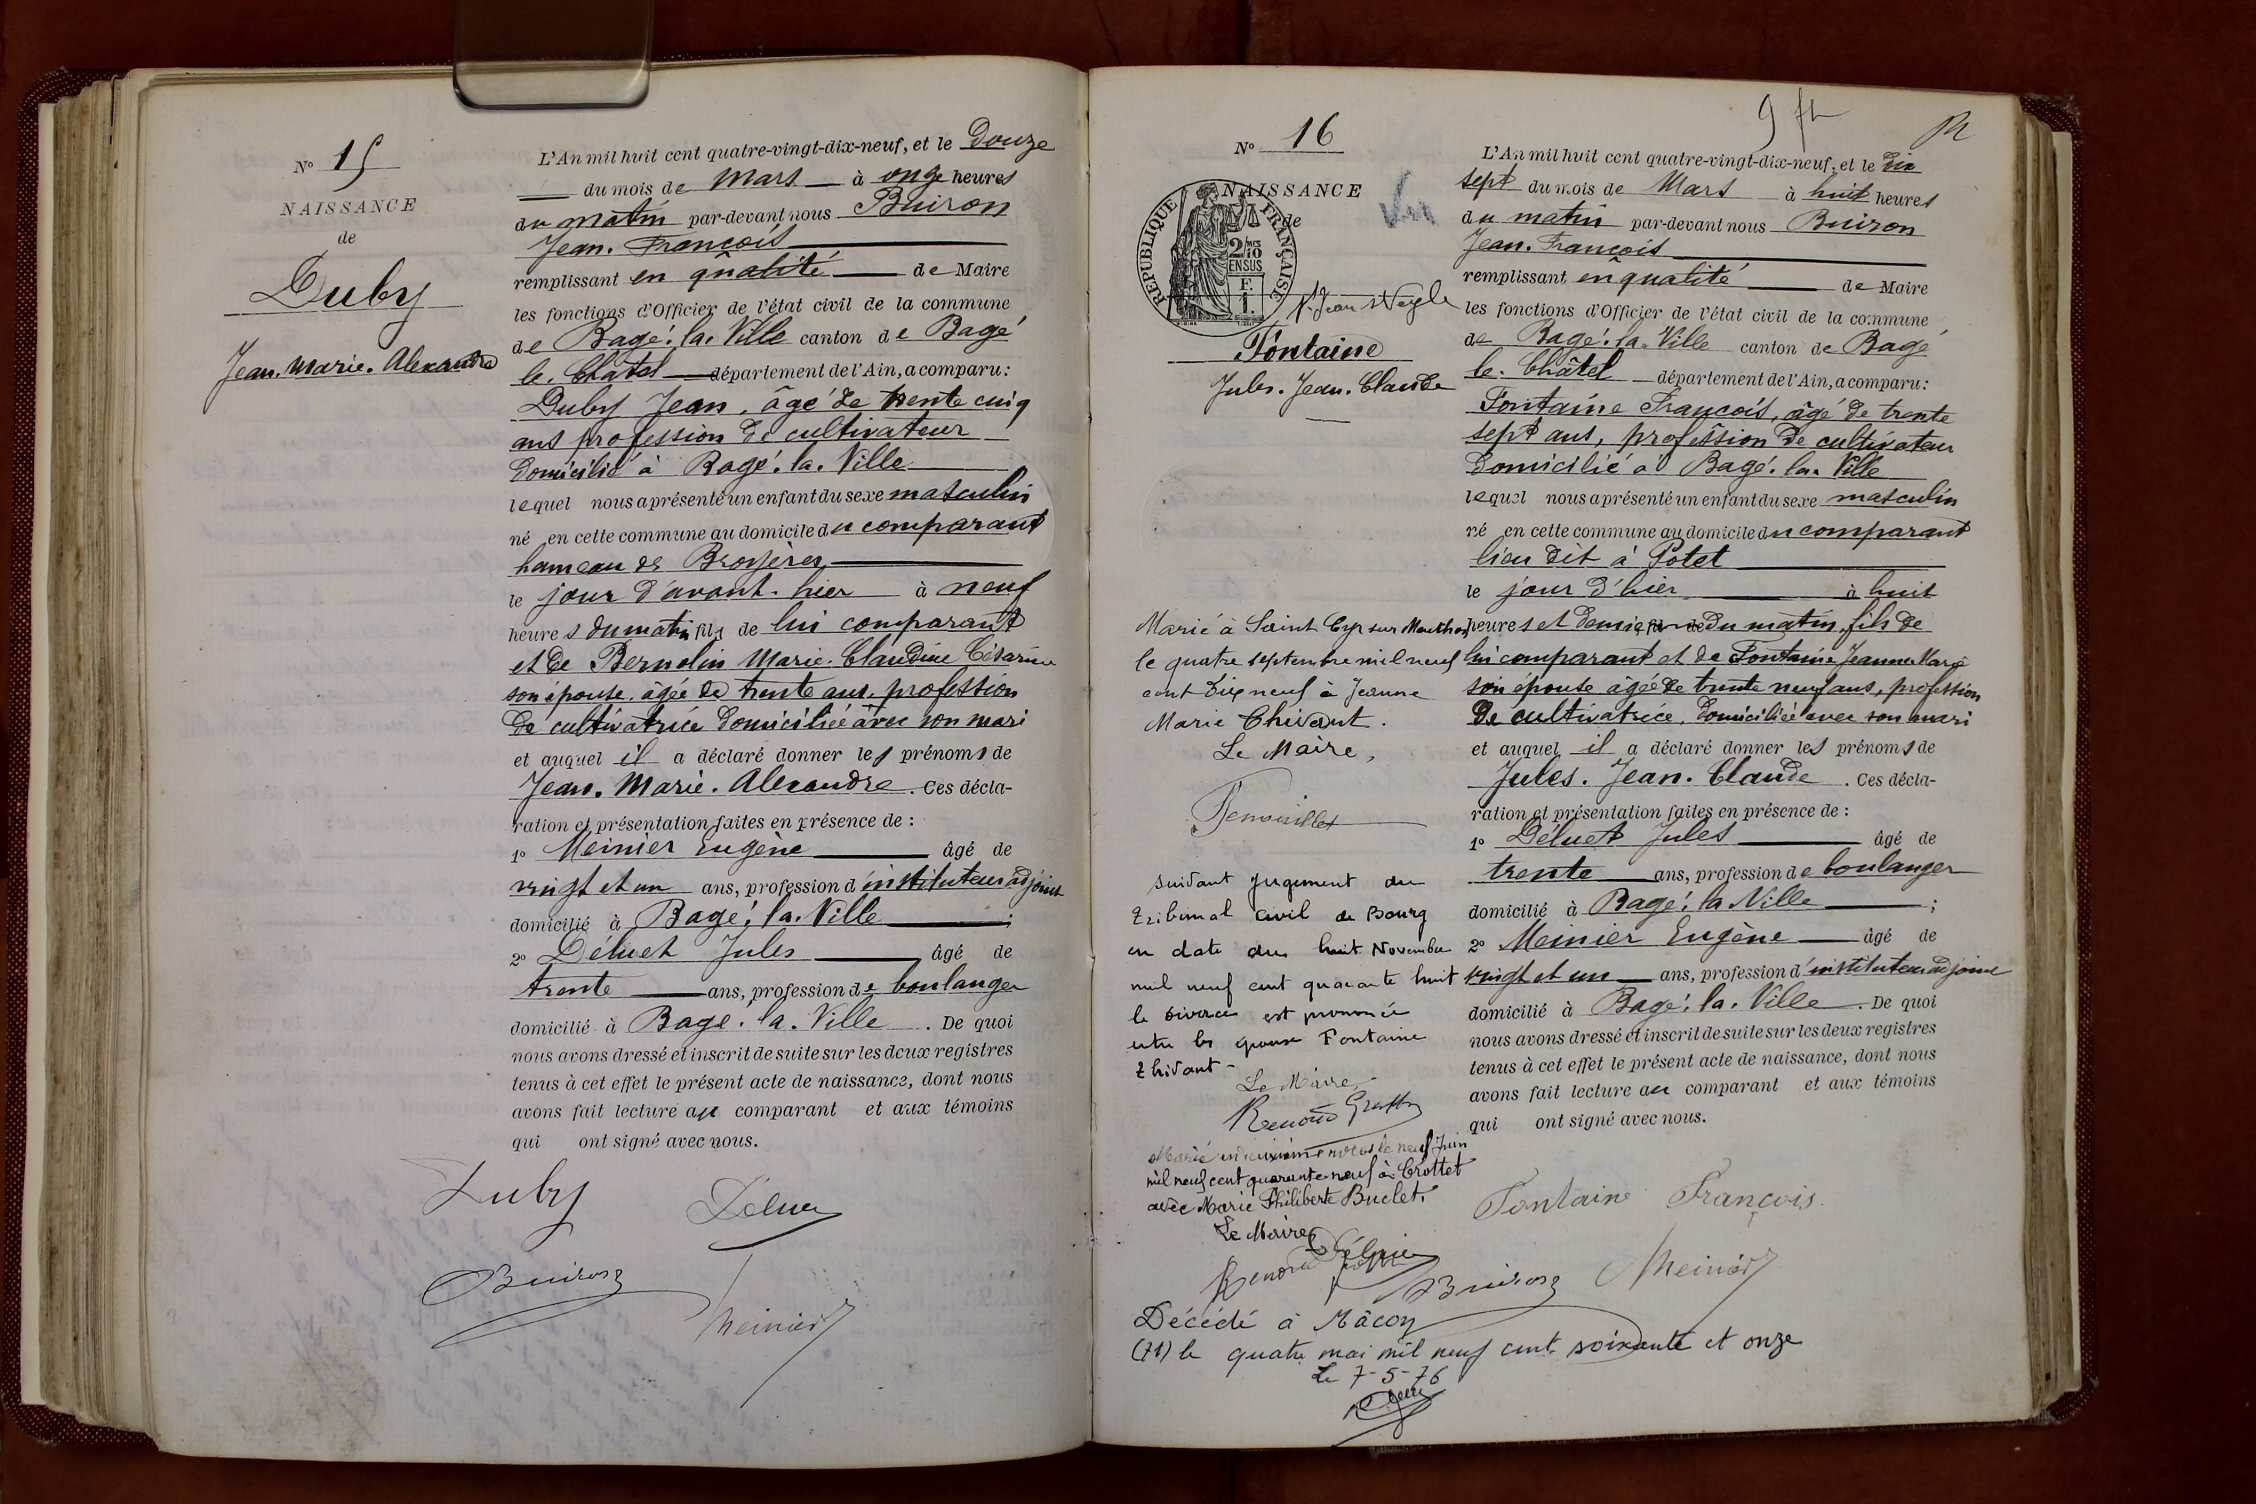 N° 15
NAISSANCE
de
Duby
Jean. Marie. Alexandre
L'An mil huit cent quatre-vingt-dix-neuf, et le Douze
du mois de Mars à onze heures
du matin par-devant nous Buiron
Jean. François
remplissant en qualité de Maire
les fonctions d'Officier de l'état civil de la commune
de Bagé. la. Ville canton de Bagé
le. Châtel département de l'Ain, a comparu :
Duby Jean, âgé de trente cinq
ans profession de cultivateur
domicilié à Bagé. la. Ville
lequel nous a présenté un enfant du sexe masculin
né en cette commune au domicile du comparant
hameau de Broyères
le jour d'avant. hier à neuf
heures du matin fils de lui comparant
et de Bernolin Marie. Claudine Césarine
son épouse, âgée de trente ans, profession
de cultivatrice domiciliée avec son mari
et auquel il a déclaré donner les prénoms de
Jean. Marie. Alexandre. Ces décla-
ration et présentation faites en présence de :
1° Meinier Eugène âgé de
vingt et un ans, profession d'instituteur adjoint
domicilié à Bagé. la. Ville ;
2° Déluet Jules âgé de
trente ans, profession de boulanger
domicilié à Bagé. la. Ville. De quoi
nous avons dressé et inscrit de suite sur les deux registres
tenus à cet effet le présent acte de naissance, dont nous
avons fait lecture au comparant et aux témoins
qui ont signé avec nous.
Duby Déluet
Buiron Meinier
9
N° 16
NAISSANCE
de
RÉPUBLIQUE FRANÇAISE
2/10 MES
EN SUS
F.
1.
Vu
Fontaine
Jules. Jean. Claude
L'An mil huit cent quatre-vingt-dix-neuf, et le dix
sept du mois de Mars à huit heures
du matin par-devant nous Buiron
Jean. François
remplissant en qualité de Maire
les fonctions d'Officier de l'état civil de la commune
de Bagé. la. Ville canton de Bagé
le. Châtel département de l'Ain, a comparu :
Fontaine François, âgé de trente
sept ans, profession de cultivateur
domicilié à Bagé. la. Ville
lequel nous a présenté un enfant du sexe masculin
né en cette commune au domicile du comparant
lieu dit à Potet
le jour d'hier à huit
heures et demie du matin, fils de
lui comparant et de Fontaine Jeanne Marie
son épouse âgée de trente neuf ans, profession
de cultivatrice, domiciliée avec son mari
et auquel il a déclaré donner les prénoms de
Jules. Jean. Claude. Ces décla-
ration et présentation faites en présence de :
1° Déluet Jules âgé de
trente ans, profession de boulanger
domicilié à Bagé. la Ville ;
2° Meinier Eugène âgé de
vingt et un ans, profession d'instituteur adjoint
domicilié à Bagé. la. Ville. De quoi
nous avons dressé et inscrit de suite sur les deux registres
tenus à cet effet le présent acte de naissance, dont nous
avons fait lecture au comparant et aux témoins
qui ont signé avec nous.
Fontaine François
Buiron Meinier
Marié à Saint Cyr sur Menthon
le quatre septembre mil neuf
cent dix neuf à Jeanne
Marie Chivant.
Le Maire,
suivant jugement du
tribunal civil de Bourg
en date du huit Novembre
mil neuf cent quarante huit
le divorce est prononcé
entre les époux Fontaine
Chivant-
Le Maire,
Marié en deuxièmes noces le neuf Juin
mil neuf cent quarante-neuf à Crottet
avec Marie Philiberte Buclet.
Le Maire
Décédé à Mâcon
(71) le quatre mai mil neuf cent soixante et onze
Le 7-5-76